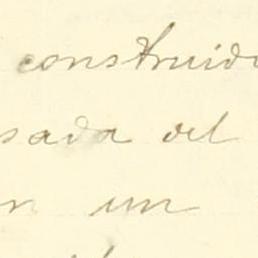 construido
sada del
un